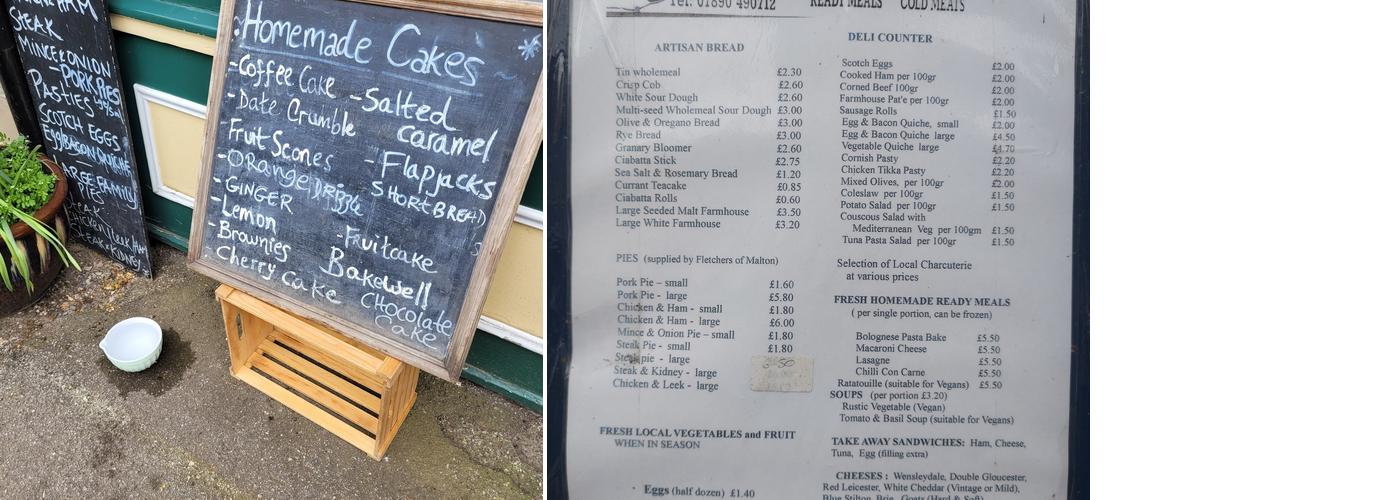 STEAK
MINCE & ONION
- PORK PIES
PASTIES
SCOTCH EGGS
LARGE FAMILY
PIES
STEAK
STEAK & KIDNEY
Homemade Cakes
- Coffee Cake
- Date Crumble
- Fruit Scones
- ORANGE DRIZZLE
- GINGER
- Lemon
- Brownies
- Cherry Cake
- Salted
caramel
- Flapjacks
SHORTBREAD
- Fruitcake
Bakewell
CHOCOLATE
Cake
Tel: 01890 490712
READY MEALS COLD MEATS
ARTISAN BREAD
Tin wholemeal £2.30
Crisp Cob £2.60
White Sour Dough £2.60
Multi-seed Wholemeal Sour Dough £3.00
Olive & Oregano Bread £3.00
Rye Bread £3.00
Granary Bloomer £2.60
Ciabatta Stick £2.75
Sea Salt & Rosemary Bread £1.20
Currant Teacake £0.85
Ciabatta Rolls £0.60
Large Seeded Malt Farmhouse £3.50
Large White Farmhouse £3.20
PIES (supplied by Fletchers of Malton)
Pork Pie – small £1.60
Pork Pie - large £5.80
Chicken & Ham - small £1.80
Chicken & Ham - large £6.00
Mince & Onion Pie – small £1.80
Steak Pie - small £1.80
Steak pie - large
Steak & Kidney - large
Chicken & Leek - large
FRESH LOCAL VEGETABLES and FRUIT
WHEN IN SEASON
Eggs (half dozen) £1.40
DELI COUNTER
Scotch Eggs £2.00
Cooked Ham per 100gr £2.00
Corned Beef 100gr £2.00
Farmhouse Pat'e per 100gr £2.00
Sausage Rolls £1.50
Egg & Bacon Quiche, small £2.00
Egg & Bacon Quiche large £4.50
Vegetable Quiche large £4.70
Cornish Pasty £2.20
Chicken Tikka Pasty £2.20
Mixed Olives, per 100gr £2.00
Coleslaw per 100gr £1.50
Potato Salad per 100gr £1.50
Couscous Salad with
Mediterranean Veg per 100gm £1.50
Tuna Pasta Salad per 100gr £1.50
Selection of Local Charcuterie
at various prices
FRESH HOMEMADE READY MEALS
( per single portion, can be frozen)
Bolognese Pasta Bake £5.50
Macaroni Cheese £5.50
Lasagne £5.50
Chilli Con Carne £5.50
Ratatouille (suitable for Vegans) £5.50
SOUPS (per portion £3.20)
Rustic Vegetable (Vegan)
Tomato & Basil Soup (suitable for Vegans)
TAKE AWAY SANDWICHES: Ham, Cheese,
Tuna, Egg (filling extra)
CHEESES : Wensleydale, Double Gloucester,
Red Leicester, White Cheddar (Vintage or Mild),
Blue Stilton, Brie, Goats (Hard & Soft)